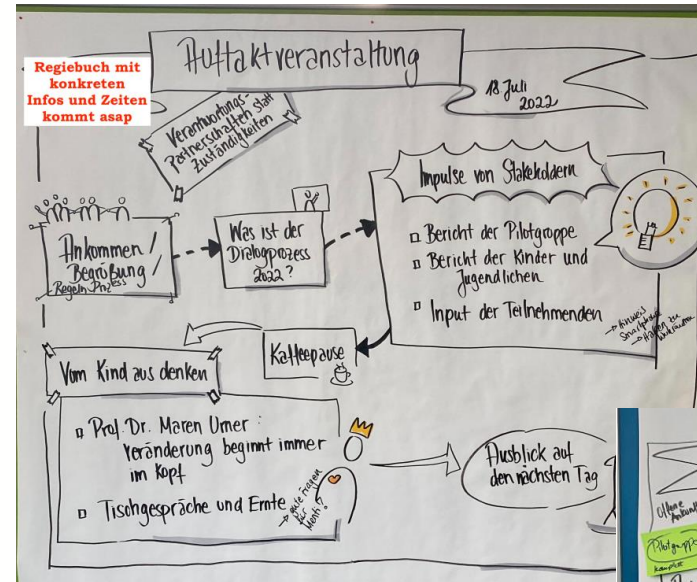 Auftaktveranstaltung
18. Juli
2022
Regiebuch mit
konkreten
Infos und Zeiten
kommt asap
Verantwortungs-
Partnerschaften statt
Zuständigkeiten
Ankommen /
Begrüßung /
Regeln Prozess
Was ist der
Dialogprozess
2022?
Impulse von Stakeholdern
Bericht der Pilotgruppe
Bericht der Kinder und
Jugendlichen
Input der Teilnehmenden
→ Hinweis
Smartphone
→ Hafen zu
Kaffeepause
Vom Kind aus denken
Prof. Dr. Maren Urner:
Veränderung beginnt immer
im Kopf
Tischgespräche und Ernte
→ gute Fragen
für
Menti!?
Ausblick auf
den nächsten Tag
Offene
Pilotgruppe
komplett